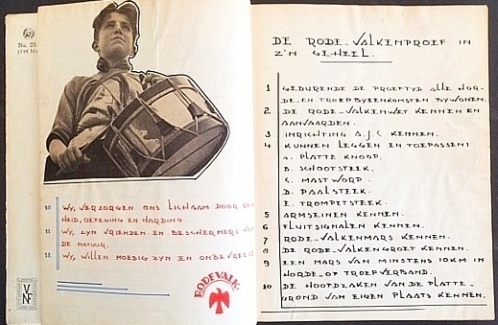 No. 25
10 WY, VERZORGEN ONS LICHAAM DOOR
HEID, OEFENING EN HARDING
11 WY, ZYN VRIENDEN EN BESCHERMERS VAN
DE NATUUR.
12 WY, WILLEN MOEDIG ZYN EN
RODEVALK
VNF
DE RODE-VALKENPROEF IN
Z'N GEHEEL.
1 GEDURENDE DE PROEFTYD ALLE HOR-
DE- EN TROEPBYEENKOMSTEN BYWONEN.
2 DE RODE-VALKENWET KENNEN EN
AANVAARDEN.
3 INRICHTING A.J.C KENNEN.
4 KUNNEN LEGGEN EN TOEPASSEN:
A. PLATTE KNOOP.
B. SCHOOTSTEEK.
C. MASTWORP.
D. PAALSTEEK.
E. TROMPETSTEEK.
5 ARMSEINEN KENNEN.
6 FLUITSIGNALEN KENNEN.
7 RODE-VALKENMARS KENNEN.
8 DE RODE-VALKENGROET KENNEN.
9 EEN MARS VAN MINSTENS 10KM IN
HORDE- OF TROEPVERBAND.
10 DE HOOFDZAKEN VAN DE PLATTE-
GROND VAN EIGEN PLAATS KENNEN.